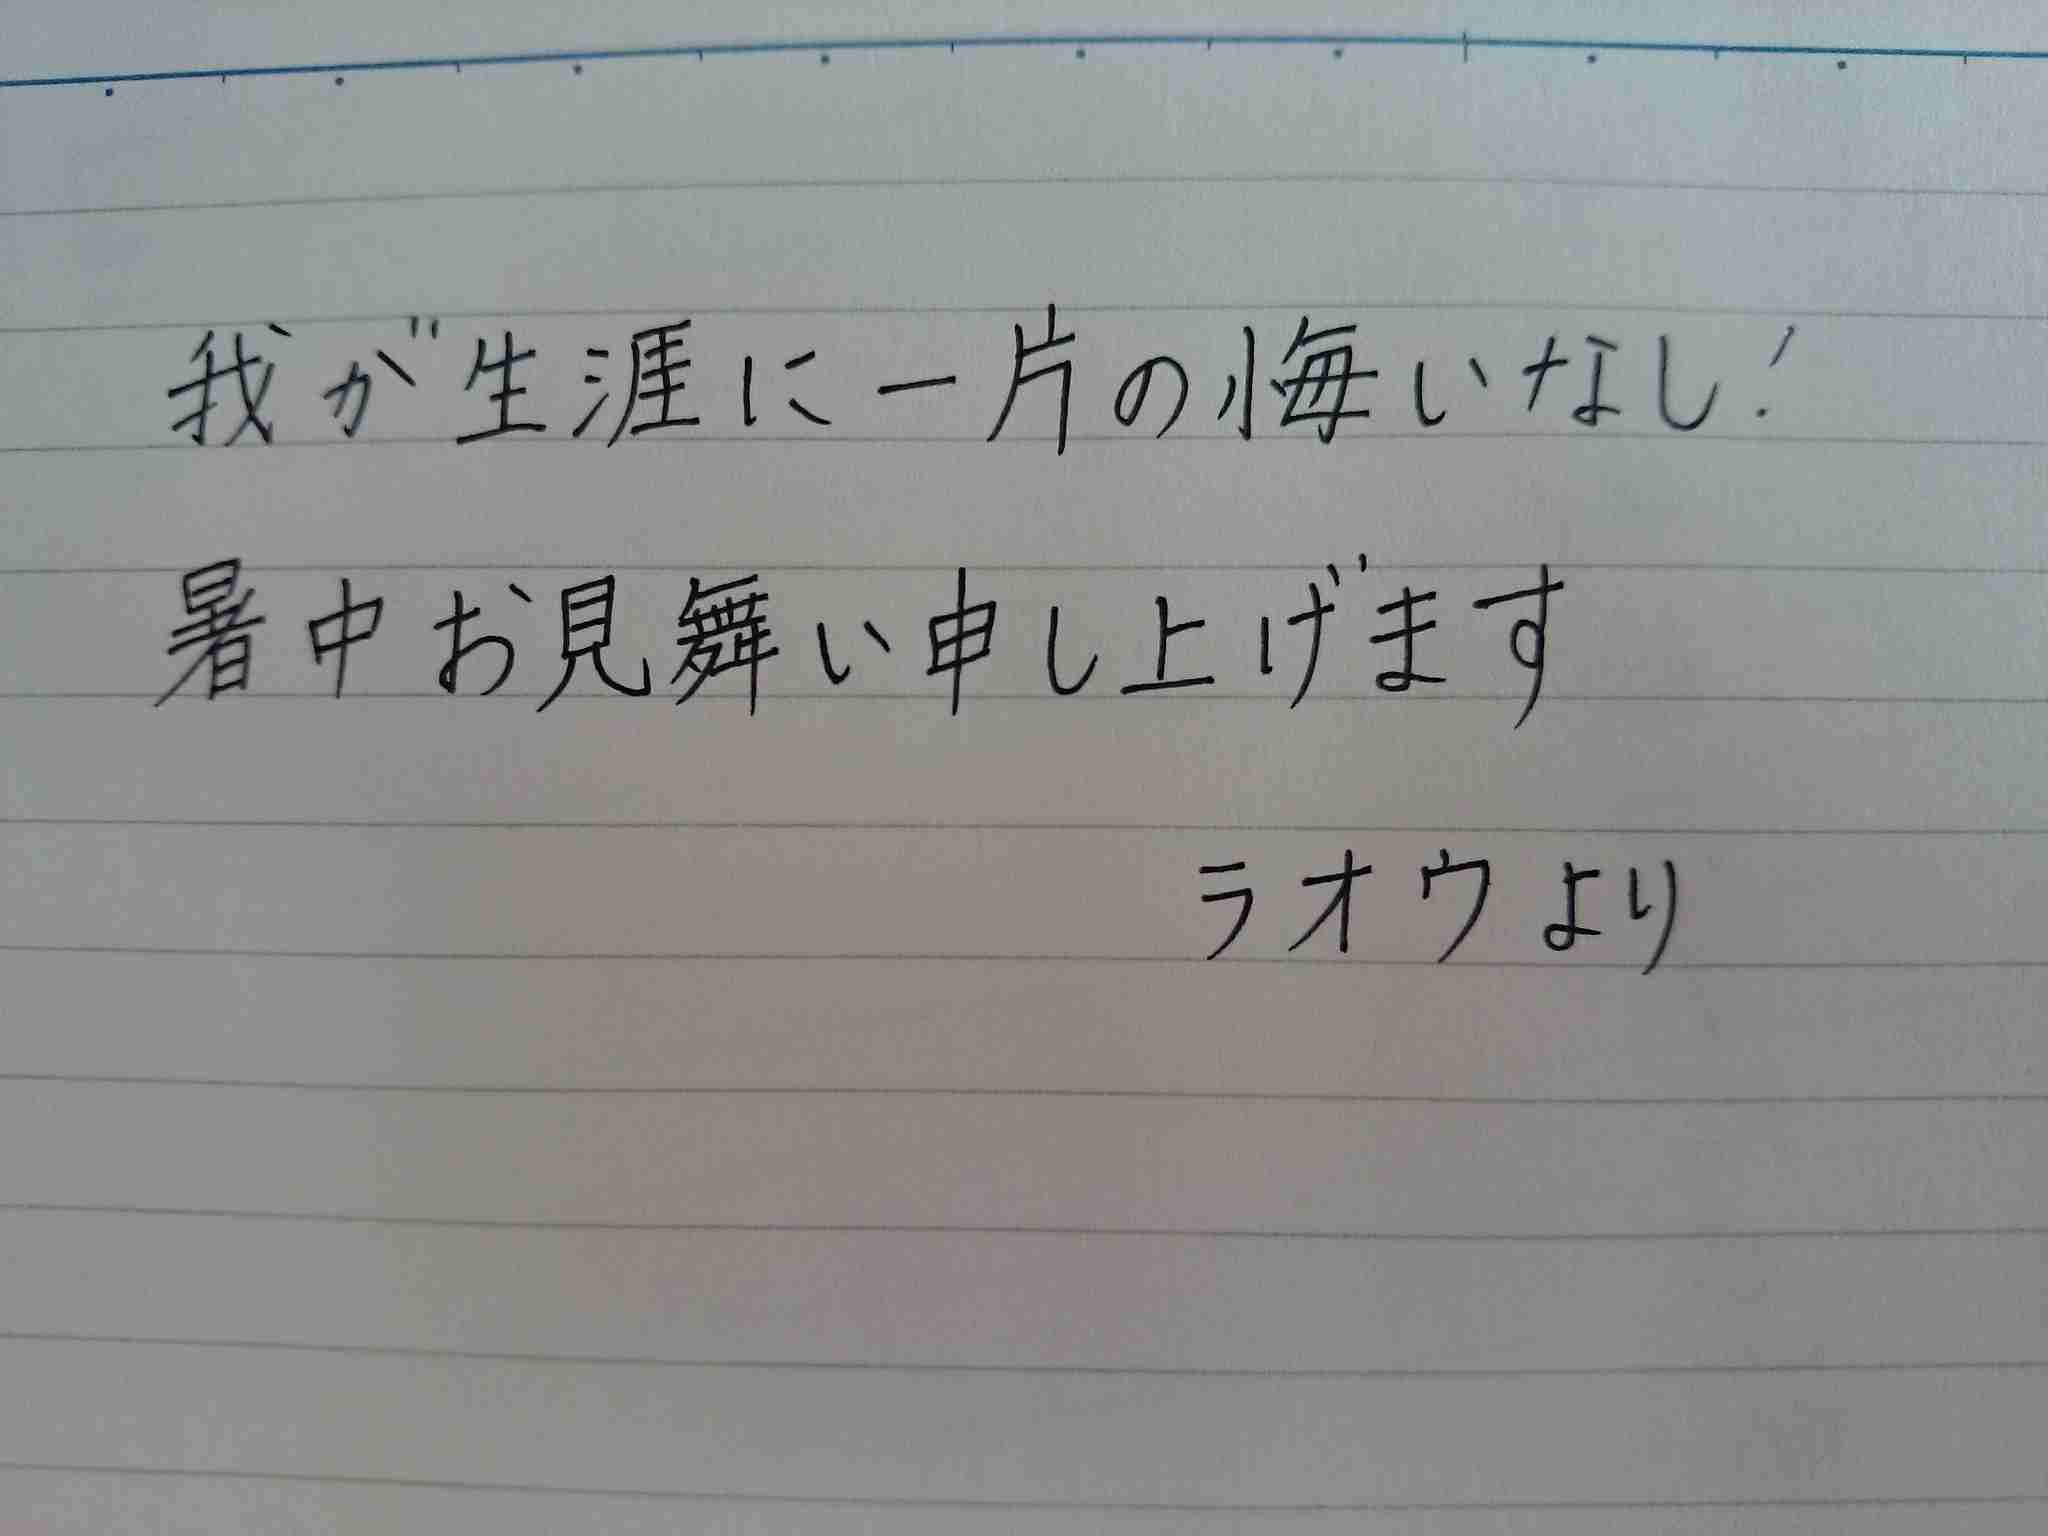 我が生涯に一片の悔いなし!
暑中お見舞い申し上げます
ラオウより